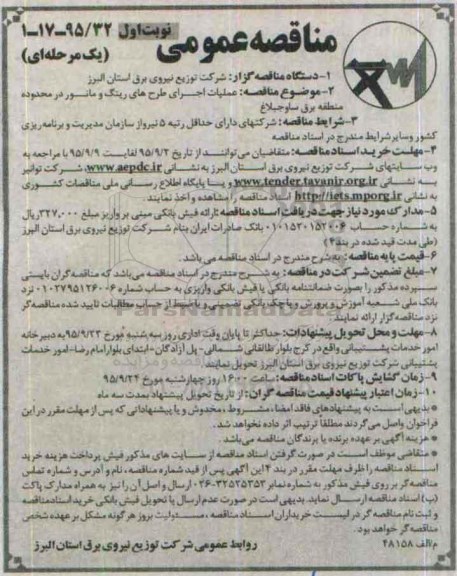 مناقصه عمومی نوبت اول ۹۵/۳۲-۱۷-۱
(یک مرحله ای)
۱-دستگاه مناقصه گزار: شرکت توزیع نیروی برق استان البرز
۲-موضوع مناقصه: عملیات اجرای طرح های رینگ و مانور در محدوده
منطقه برق ساوجبلاغ
۳-شرایط مناقصه: شرکتهای دارای حداقل رتبه ۵ نیرو از سازمان مدیریت و برنامه ریزی
کشور و سایر شرایط مندرج در اسناد مناقصه
۴-مهلت خرید اسناد مناقصه: متقاضیان می توانند از تاریخ ۹۵/۹/۲ لغایت ۹۵/۹/۹ با مراجعه به
وب سایتهای شرکت توزیع نیروی برق استان البرز به نشانی www.aepdc.ir، شرکت توانیر
به نشانی www.tender.tavanir.org.ir و یا پایگاه اطلاع رسانی ملی مناقصات کشوری
به نشانی http://iets.mporg.ir اسناد مناقصه را مشاهده و اخذ نمایند
۵-مدارک مورد نیاز جهت دریافت اسناد مناقصه: ارائه فیش بانکی مبنی بر واریز مبلغ ۳۲۷,۰۰۰ ریال
به شماره حساب ۰۱۰۱۵۲۰۱۵۲۰۰۶ بانک صادرات ایران بنام شرکت توزیع نیروی برق استان البرز
(طی مدت قید شده در بند ۴)
۶-قیمت پایه مناقصه: به شرح مندرج در اسناد مناقصه می باشد.
۷-مبلغ تضمین شرکت در مناقصه: به شرح مندرج در اسناد مناقصه می باشد که مناقصه گران بایستی
سپرده مذکور را بصورت ضمانتنامه بانکی یا فیش بانکی واریزی به حساب شماره ۰۱۰۲۷۹۵۱۲۶۰۰۶ نزد
بانک ملی شعبه آموزش و پرورش و یا چک بانکی تضمینی و یا ضبط از حساب مطالبات تایید شده مناقصه گر
نزد مناقصه گزار ارائه نمایند.
۸-مهلت و محل تحویل پیشنهادات: حداکثر تا پایان وقت اداری روز سه شنبه مورخ ۹۵/۹/۲۳ به دبیرخانه
امور خدمات پشتیبانی واقع در کرج بلوار طالقانی شمالی- پل آزادگان- ابتدای بلوار امام رضا- امور خدمات
پشتیبانی شرکت توزیع نیروی برق استان البرز تحویل نمایند.
۹-زمان گشایش پاکات اسناد مناقصه: ساعت ۱۶:۰۰ روز چهارشنبه مورخ ۹۵/۹/۲۴
۱۰-زمان اعتبار پیشنهاد قیمت مناقصه گران: از تاریخ تحویل پیشنهاد بمدت سه ماه
* بدیهی است به پیشنهادهای فاقد امضاء، مشروط، مخدوش و یا پیشنهاداتی که پس از مهلت مقرر در این
فراخوان واصل می گردند مطلقا ترتیب اثر داده نخواهد شد.
* هزینه آگهی بر عهده برنده یا برندگان مناقصه می باشد.
* متقاضی موظف است در صورت گرفتن اسناد مناقصه از سایت های مذکور فیش پرداخت هزینه خرید
اسناد مناقصه را ظرف مهلت مقرر در بند ۴ این آگهی پس از قید شماره مناقصه، نام و آدرس و شماره تماس
مناقصه گر بر روی فیش مذکور به شماره نمابر ۳۲۵۲۵۳۵۳-۰۲۶ ارسال و اصل آن را نیز به همراه مدارک پاکت
(ب) اسناد مناقصه ارسال نماید. بدیهی است در صورت عدم ارسال یا تحویل فیش بانکی خرید اسناد مناقصه
و ثبت نام مناقصه گر در لیست خریداران اسناد مناقصه، مسئولیت بروز هرگونه مشکل بر عهده شخص
مناقصه گر خواهد بود.
م/الف ۴۸۱۵۸ روابط عمومی شرکت توزیع نیروی برق استان البرز